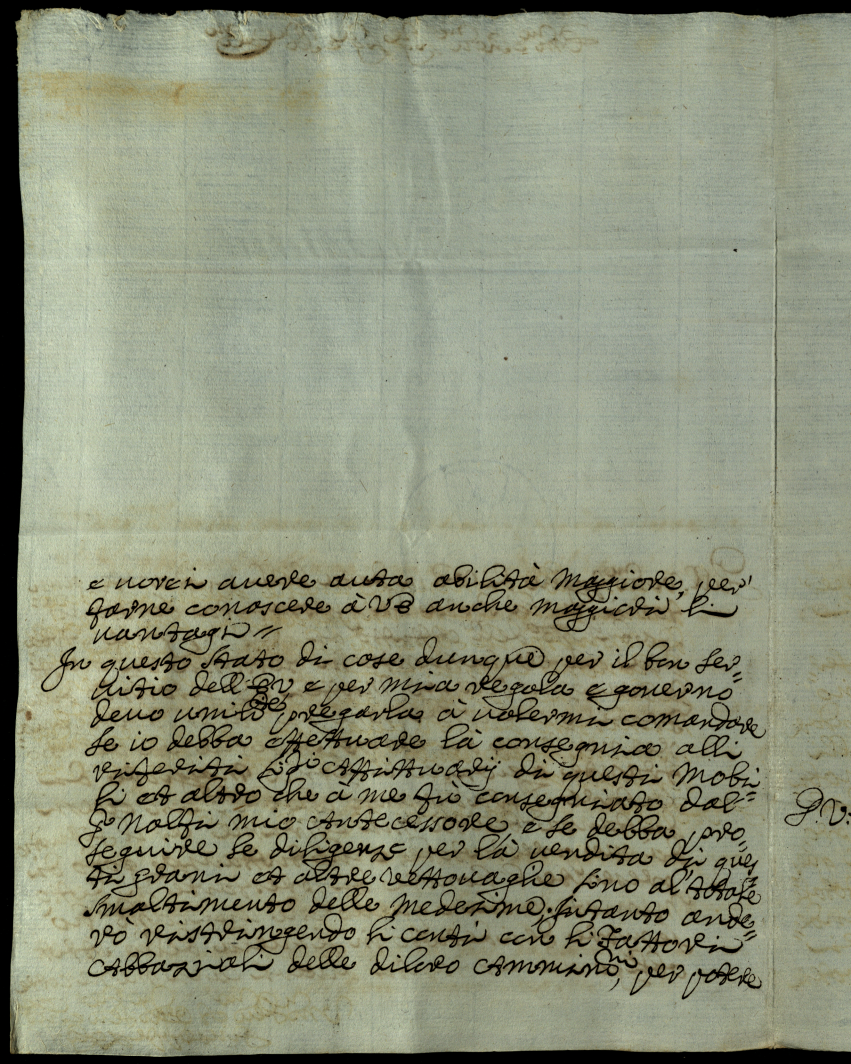 e vorei avere auta abilità Maggiore, per
farne conoscere à VE anche maggiori li
vantagi=
In questo stato di cose dunque per il bon Ser=
vitio dell' EV e per mia regola e governo
devo umilᵗᵉ pregarla à volermi comandare
se io debba effettuare la consegnia alli
riferiti SSri Affittuarij di questi Mobi=
li et altro che à me fù consegniato dal
Nalfi mio Antecessore, e se debba pro=
seguire le diligenze per la vendita di ques=
ti grani et altre vettovaghe sino al totale
smaltimento delle medesime. Intanto ande=
rò ristringendo li conti con li Fattori
Abbazziali delle diloro Amminni, per potere
P.V.